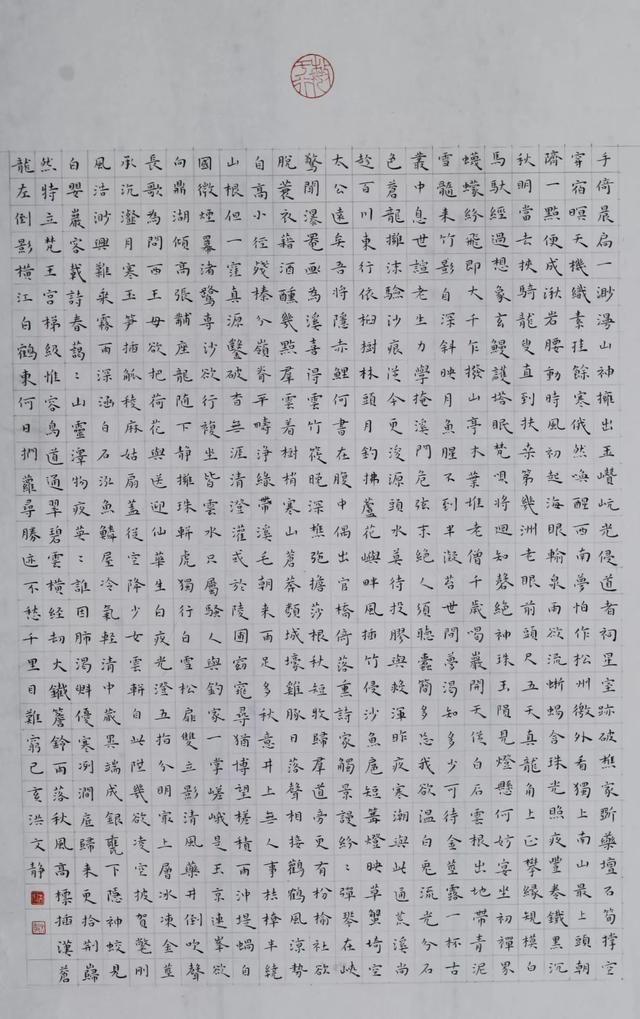 手倚晨扃一渺漫山神擁出玉巑岏光侵道者祠星室跡破樵家斷藥壇石筍撐空
穿宿暝天機織素挂餘寒俄然喚醒西南夢怕作松州徼外看獨上南山最上頭朝
隮一點便成湫岩腰動時風起海眼輸泉雨欲流蜥蜴含珠光照夜豐巷鐵黑沉
秋明當抉騎龍叟直到扶桑第幾洲老眼前頭尺五天真龍角上正攀緣規模白
馬馱經過去想象玄鰻護塔眠梵唄將迴知磬絕神珠玉隕見燈懸何妨宴坐初禪界
蠛蠓紛飛即大千乍撥山亭木葉堆老僧千歲喝巖開天從白石雲根出地帶青泥
雪髓來竹影自深斜映月魚腥不到半凝苔世間萬渴知多少可待金莖露一杯古
叢中息世諠老生力學掩溪門危弦末絕人須聽囊簡多忘我欲溫白兔流光分石
色蒼龍擁沫驗沙痕從今更沒源頭水莫待投膠與救渾昨夜寒潮與此通荒溪尚
趁百川東行依枴樹林頭月釣拂蘆花嶼畔風插竹侵沙魚扈短篝燈映草蟹埼空
太公遠矣吾將隱赤鯉何書在腹中偶出官橋倚落熏詩家觸景謾紛:彈琴在峽
驚聞瀑罨畫為溪喜得雲竹筱晚深樵弛擔莎根秋短牧歸羣道旁更有枌榆社欲
脫蓑衣藉酒醺幾點羣雲着樹梢寒山蒼莽類城壕雞豚日落聲相接鸛鶴風涼勢
自高小徑殘榛分嶺脊平疇淨綠帶溪毛朝來雨足多秋意井上無人事桔橰半繞
山根但一窪真源鑿破杳無涯清澄灌或於陵圃窈窕尋猶博望槎積雨沖堤蝸自
國微煙羃渚鷺專沙欲行複坐皆雲水只屬騷人與釣家一掌清風是玉京連峯欲
向鼎湖傾高張黼座龍隨下靜擁珠軿虎獨行白雪松扉雙立影清峨藥井倒吹聲
長歌為問西王母欲把荷花與送迎仙華生白夜光澄五指分明最上層冰凍金莖
承沆瀣月寒玉笋插觚稜麻姑扇從空降少女雲軿自此陞幾欲凌空披鶴氅剛
風浩渺興難乘霧雨深涵白石泓魚鱗屋冷氣輕清雲中歲異端成銀甕下隱神蛟見
白嬰巖客載詩春藹:山靈澤物夜英:誰因肺渴癖優寒冽澗底歸來更拾荆歸
然特立梵王宮梯級惟容鳥道通翠碧雲橫經劫火鐵簷鈴雨落秋風高標插漢蒼
龍左倒影橫江白鶴東何日捫蘿尋勝迹不愁千里目難窮己亥洪文靜